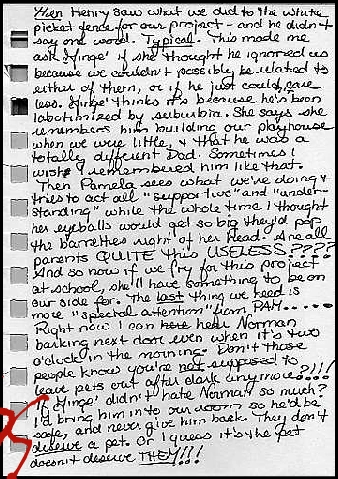 then Henry saw what we did to the white
picket fence for our project - and he didn't
say one word. Typical. This made me
ask 'Ginge' if she thought he ignored us
because we couldn't possibly be related to
either of them, or if he just could care
less. 'Ginge' thinks it's because he's been
lobotimized by suburbia. She says she
remembers him building our playhouse
when we were little, & that he was a
totally different Dad. Sometimes I
wish I remembered him like that.
Then Pamela sees what we're doing &
tries to act all "supportive" and "under-
standing" while the whole time I thought
her eyeballs would get so big they'd pop
the barrettes right off her head. Are all
parents QUITE this USELESS????
And so now if we fry for this project
at school, she'll have something to be on
our side for. The last thing we need is
more "special attention" from PAM.....
Right now I can here hear Norman
barking next door even when it's two
o'clock in the morning. Don't those
people know you're not supposed to
leave pets out after dark anymore?!!!
If 'Ginge' didn't hate Norman so much?
I'd bring him in to our room so he'd be
safe, and never give him back. They don't
deserve a pet. Or I guess it's the pet
doesn't deserve THEY!!!